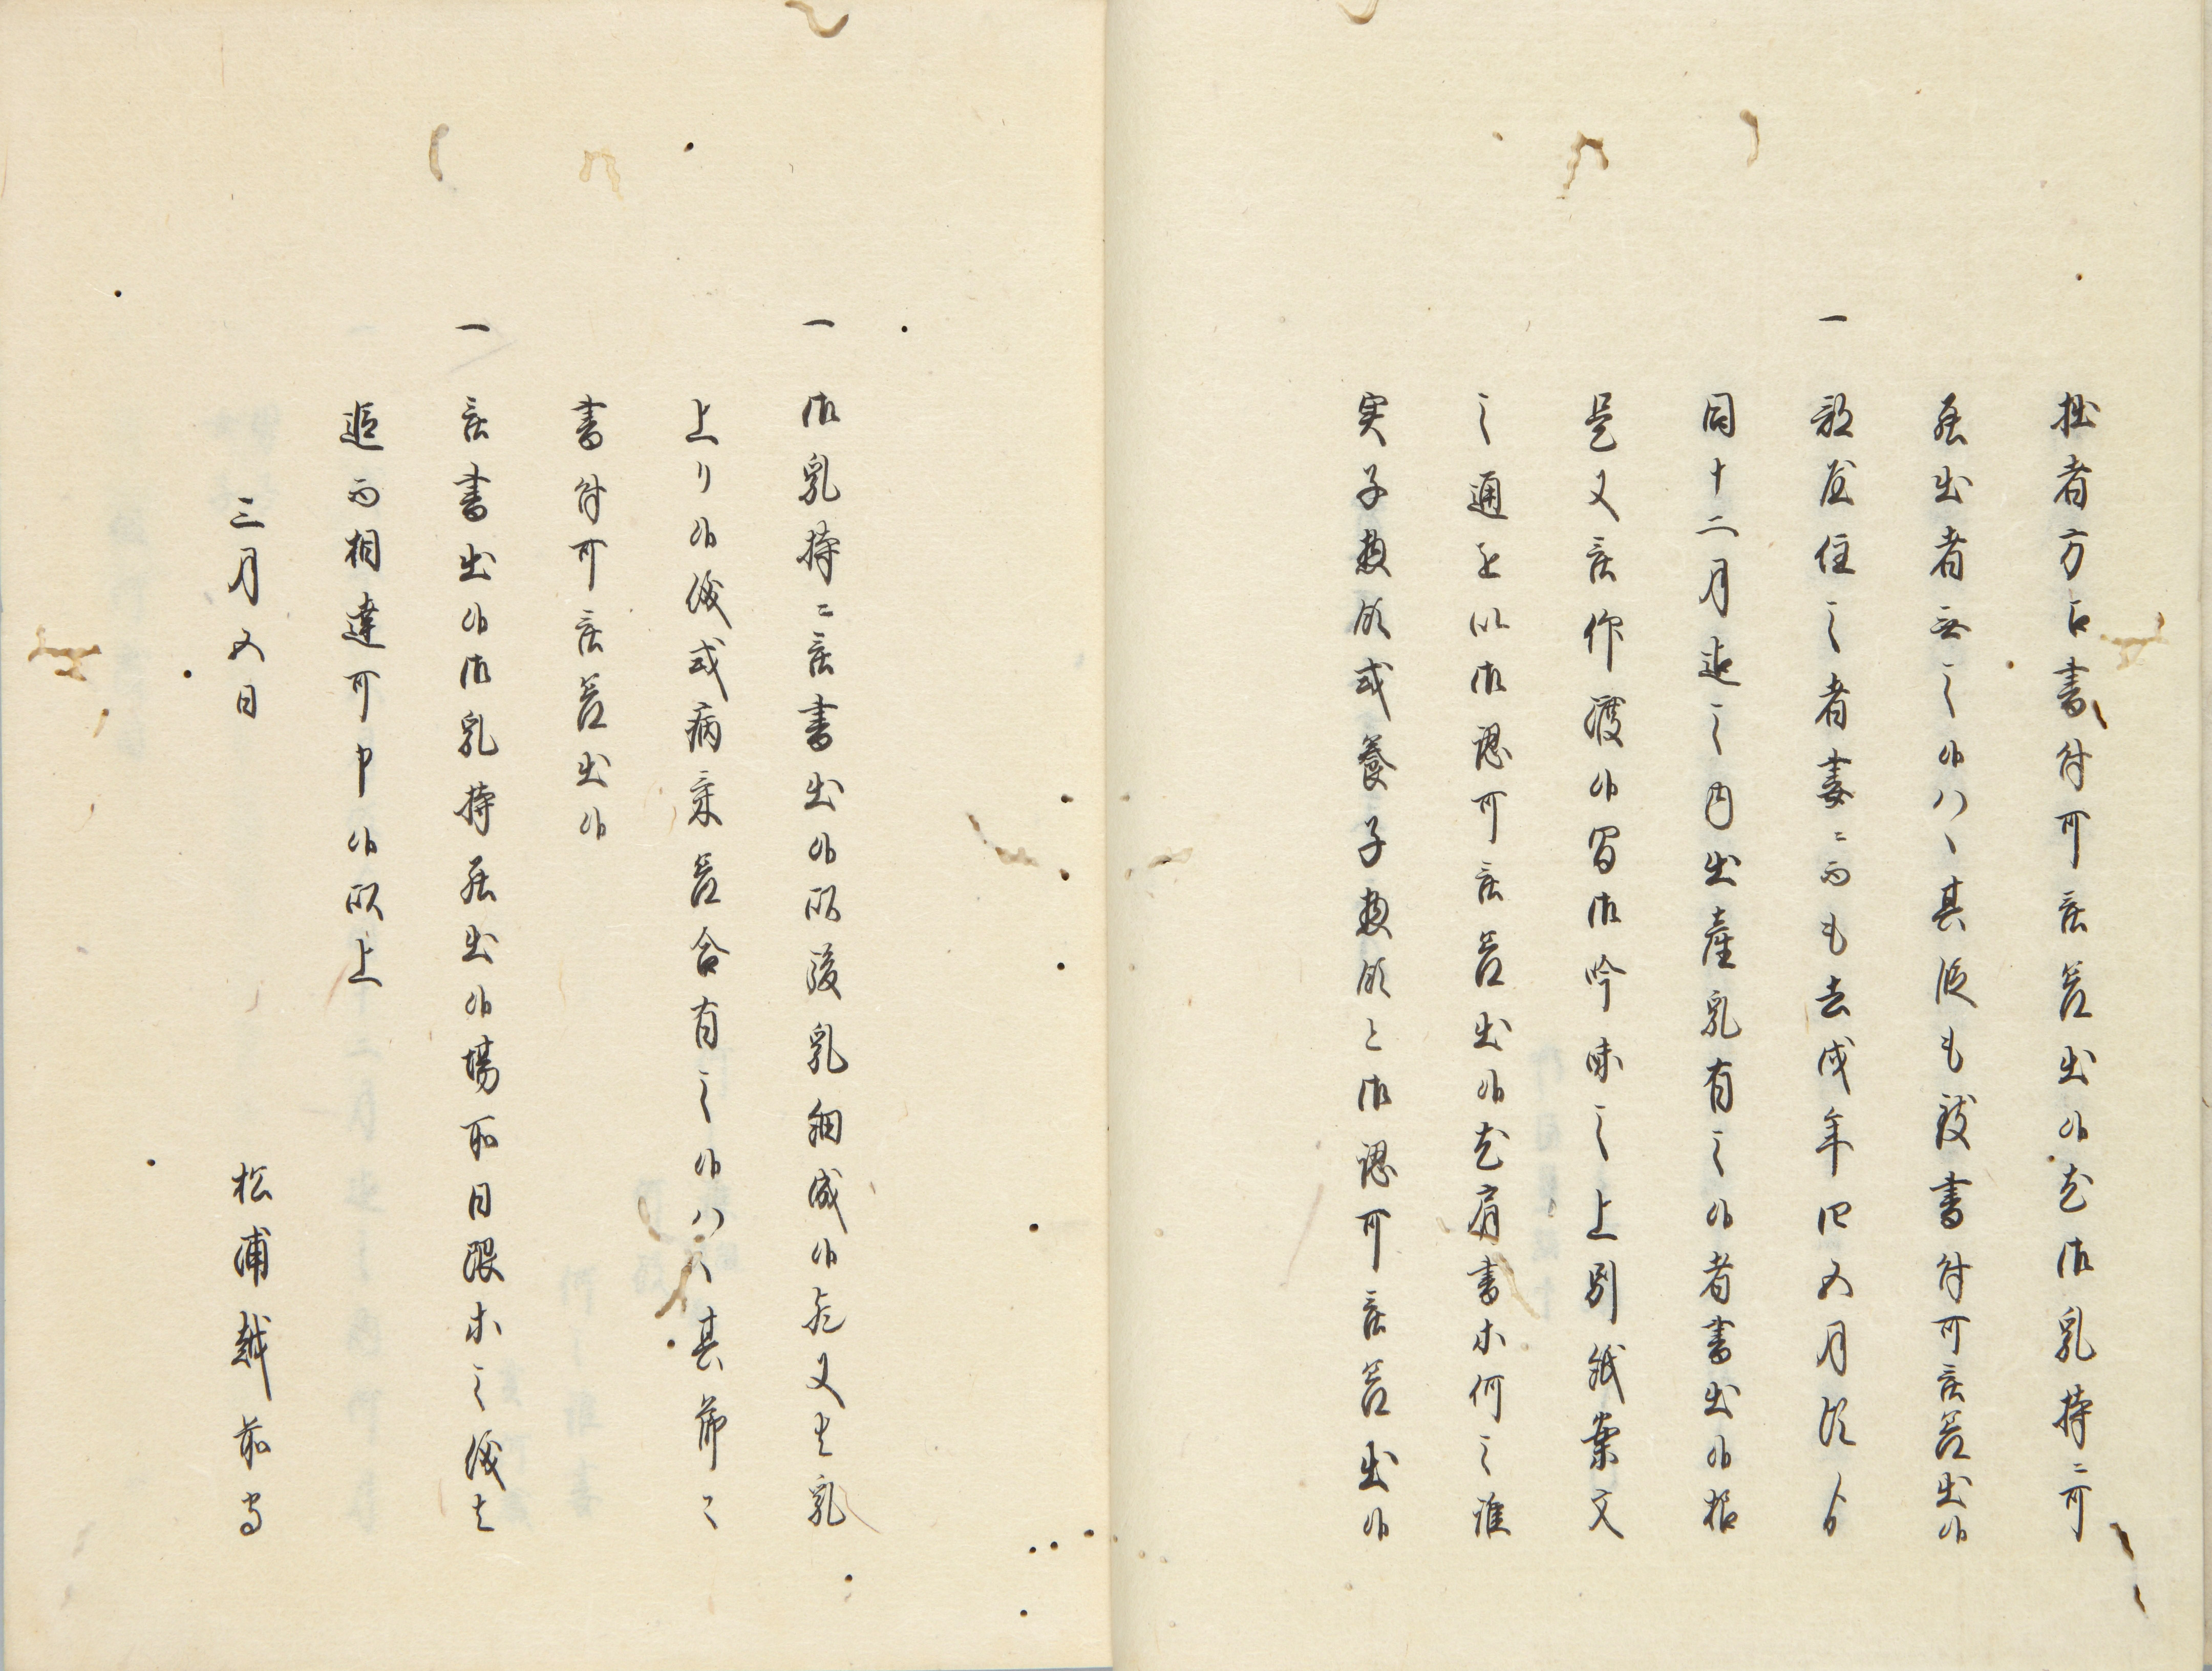 拙者方江書付可被差出候尤御乳持ニ可
罷出者無之候ハヽ其段も被書付可被差出候
一 部屋住之者妻ニ而も去戌年四五月頃ゟ
同十二月迄之内出産乳有之候者書出候様
是又被仰渡候間御吟味之上別紙案文
之通を以御認可被差出候尤肩書等何之誰
実子惣領或養子惣領と御認可被差出候
一 御乳持ニ被書出候以後乳細成候歟又者乳
上り候儀或病気差合有之候ハヽ其節々
書付可被差出候
一 被書出候御乳持罷出候場所日限等之儀者
追而相達可申候以上
三月五日
松浦越前守